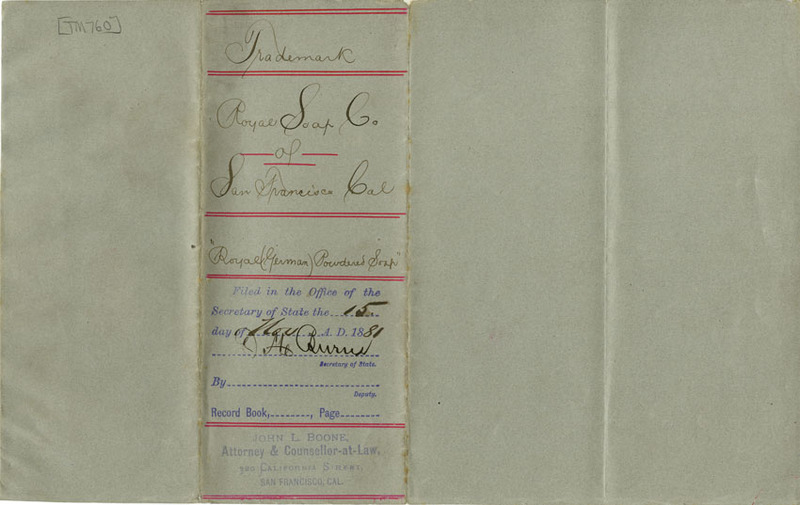 [TM760]
Trademark
Royal Soap Co
of
San Francisco Cal
"Royal (German) Powdered Soap"
Filed in the Office of the
Secretary of State the 15
day of Nov A. D. 1881
Burns
Secretary of State.
By
Deputy.
Record Book, , Page
JOHN L. BOONE,
Attorney & Counsellor-at-Law,
320 CALIFORNIA STREET,
SAN FRANCISCO, CAL.